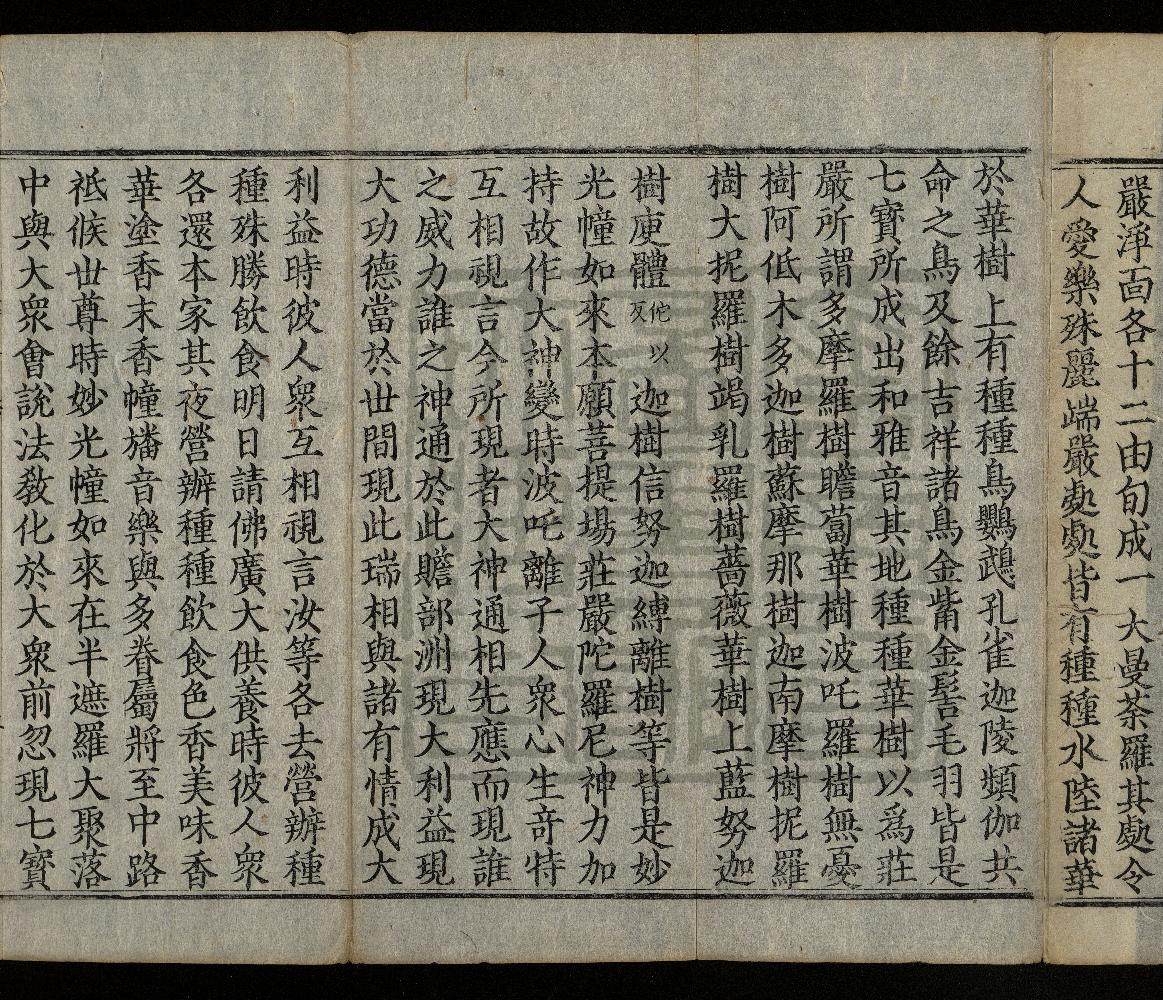 嚴淨面各十二由旬成一大曼荼羅其處令
人愛樂殊麗端嚴處處皆有種種水陸諸華
於華樹上有種種鳥鸚鵡孔雀迦陵頻伽共
命之鳥及餘吉祥諸鳥金觜金髻毛羽皆是
七寶所成出和雅音其地種種華樹以爲莊
嚴所謂多摩羅樹瞻蔔華樹波吒羅樹無憂
樹阿低木多迦樹蘇摩那樹迦南摩樹抳羅
樹大抳羅樹竭乳羅樹薔薇華樹上藍努迦
樹庾體佗以反迦樹信努迦縛離樹等皆是妙
光幢如來本願菩提場莊嚴陀羅尼神力加
持故作大神變時波吒離子人衆心生竒特
互相視言今所現者大神通相先應而現誰
之威力誰之神通於此贍部洲現大利益現
大功德當於世間現此瑞相與諸有情成大
利益時彼人衆互相視言汝等各去營辦種
種殊勝飲食明日請佛廣大供養時彼人衆
各還本家其夜營辦種種飲食色香美味香
華塗香末香幢旛音樂與多眷屬將至中路
祗候世尊時妙光幢如來在半遮羅大聚落
中與大衆會說法敎化於大衆前忽現七寶